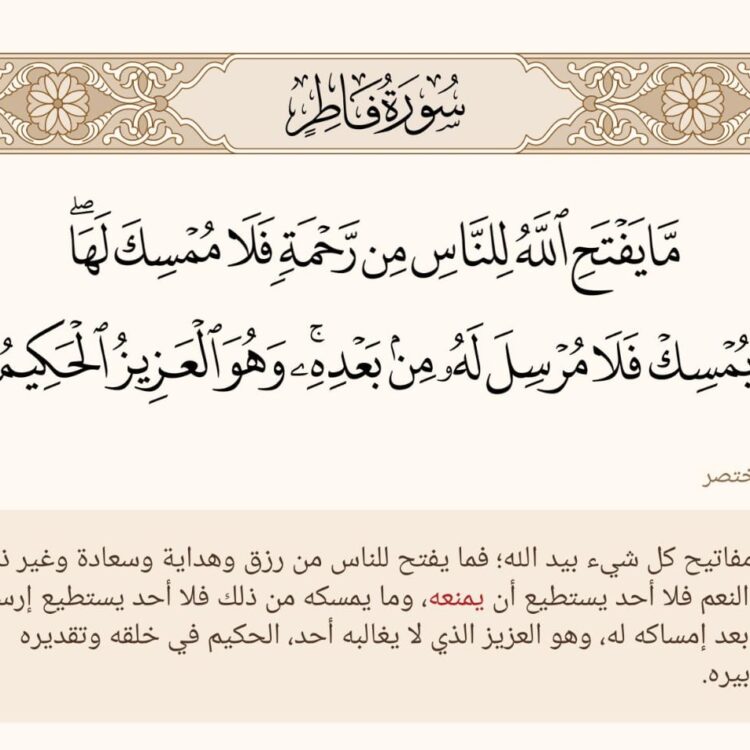 سُورَةُ فَاطِرٍ
مَّا يَفۡتَحِ ٱللَّهُ لِلنَّاسِ مِن رَّحۡمَةٖ فَلَا مُمۡسِكَ لَهَاۖ
يُمۡسِكۡ فَلَا مُرۡسِلَ لَهُۥ مِنۢ بَعۡدِهِۦۚ وَهُوَ ٱلۡعَزِيزُ ٱلۡحَكِيمُ
ختصر
مفاتيح كل شيء بيد الله؛ فما يفتح للناس من رزق وهداية وسعادة وغير ذ
النعم فلا أحد يستطيع أن يمنعه، وما يمسكه من ذلك فلا أحد يستطيع إرس
بعد إمساكه له، وهو العزيز الذي لا يغالبه أحد، الحكيم في خلقه وتقديره
بيره.